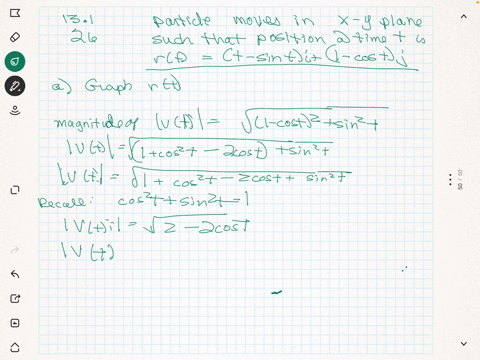 13.1 particle moves in x-y plane
26 such that position @ time t is
r(t) = (t-sint)i+(1-cost)j
a) Graph r(t)
magnitude of |V(t)| = √((1-cost)²+sin²t)
|V(t)| = √((1+cos²t - 2cost) + sin²t)
|V(t)| = √(1 + cos²t - 2cost + sin²t)
Recall: cos²t + sin²t = 1
|V(t)i| = √(2 - 2cost)
|V(t)